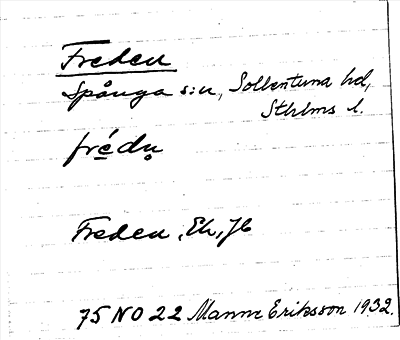 Freden
Spånga s:n, Sollentuna hd,
Sthlms l.
frédn̥
Freden, Ek, Jb
75 NO 22 Manne Eriksson 1932.